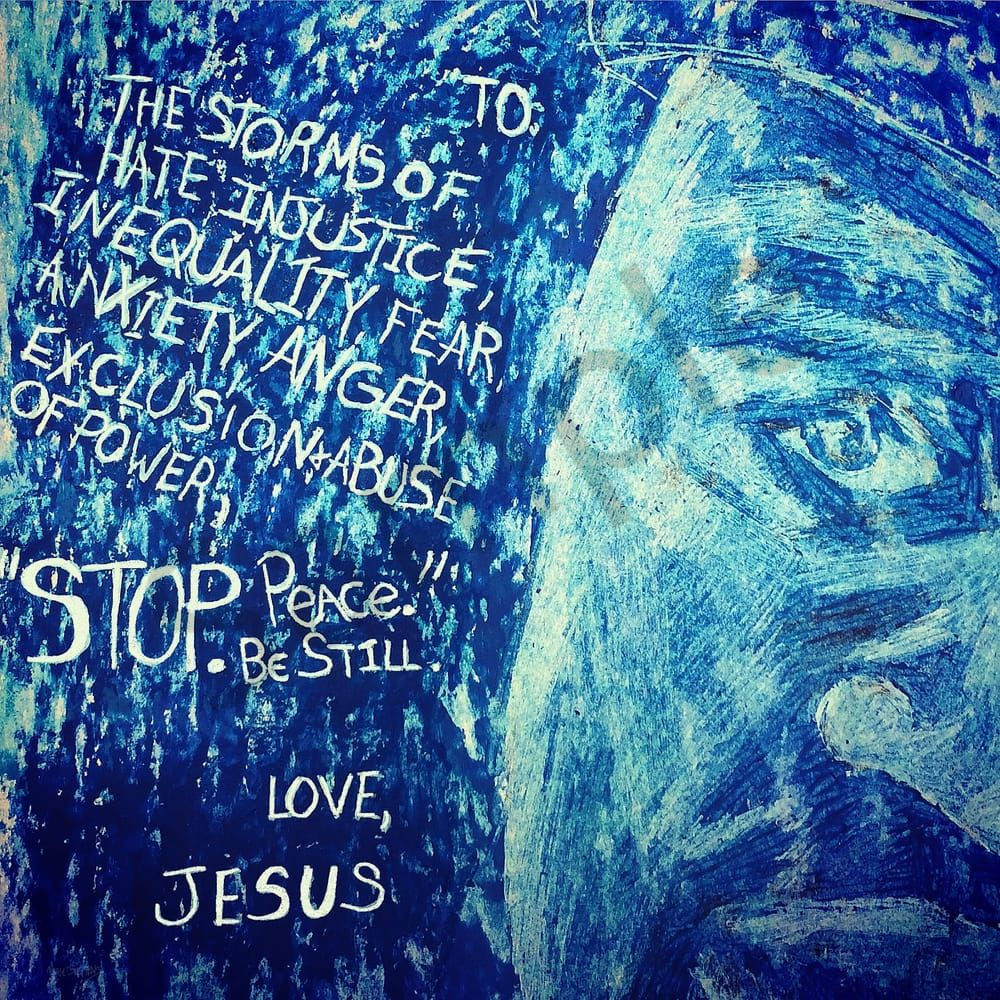 "TO:
THE STORMS OF
HATE INJUSTICE,
INEQUALITY, FEAR,
ANXIETY, ANGER,
EXCLUSION + ABUSE
OF POWER,
"STOP. Peace."
Be STILL.
LOVE,
JESUS